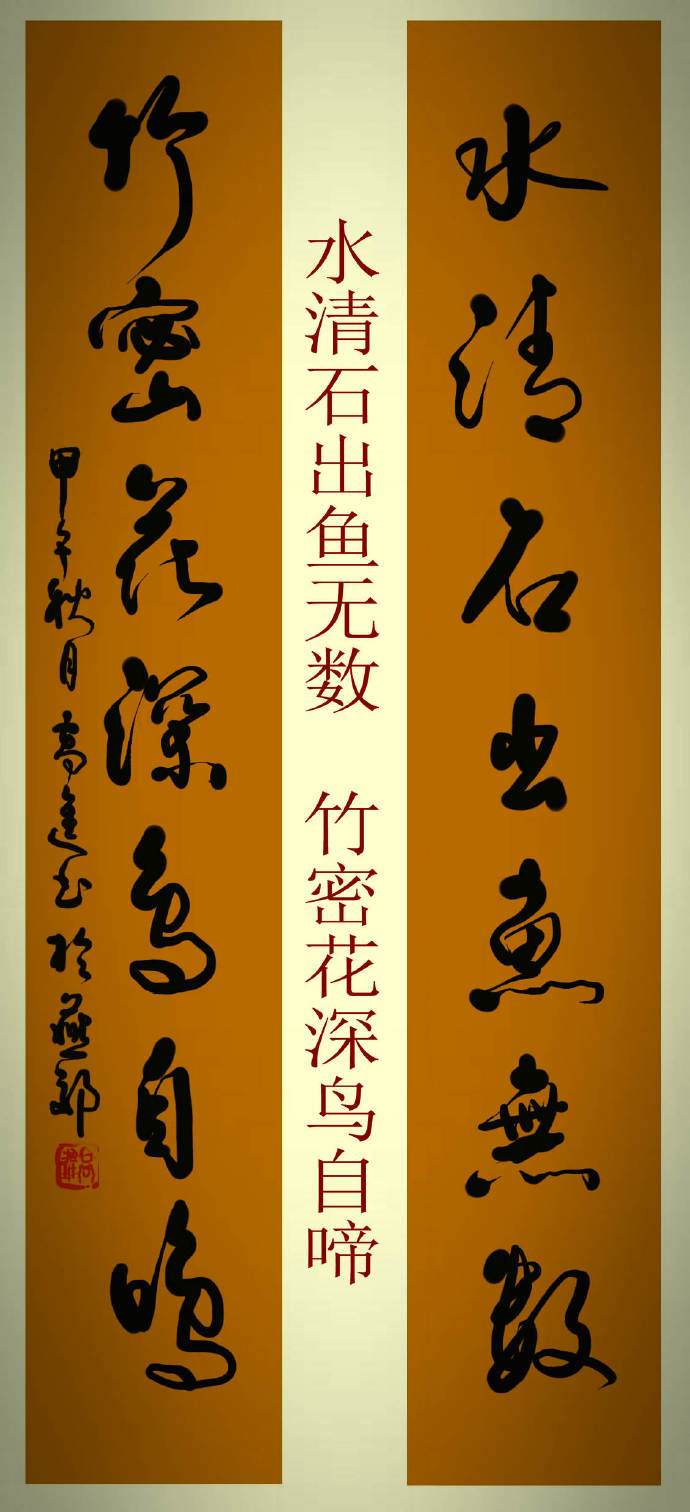 水清石出魚無數
水清石出鱼无数 竹密花深鸟自啼
竹密花深鳥自鳴
甲午秋月高進书於燕郊